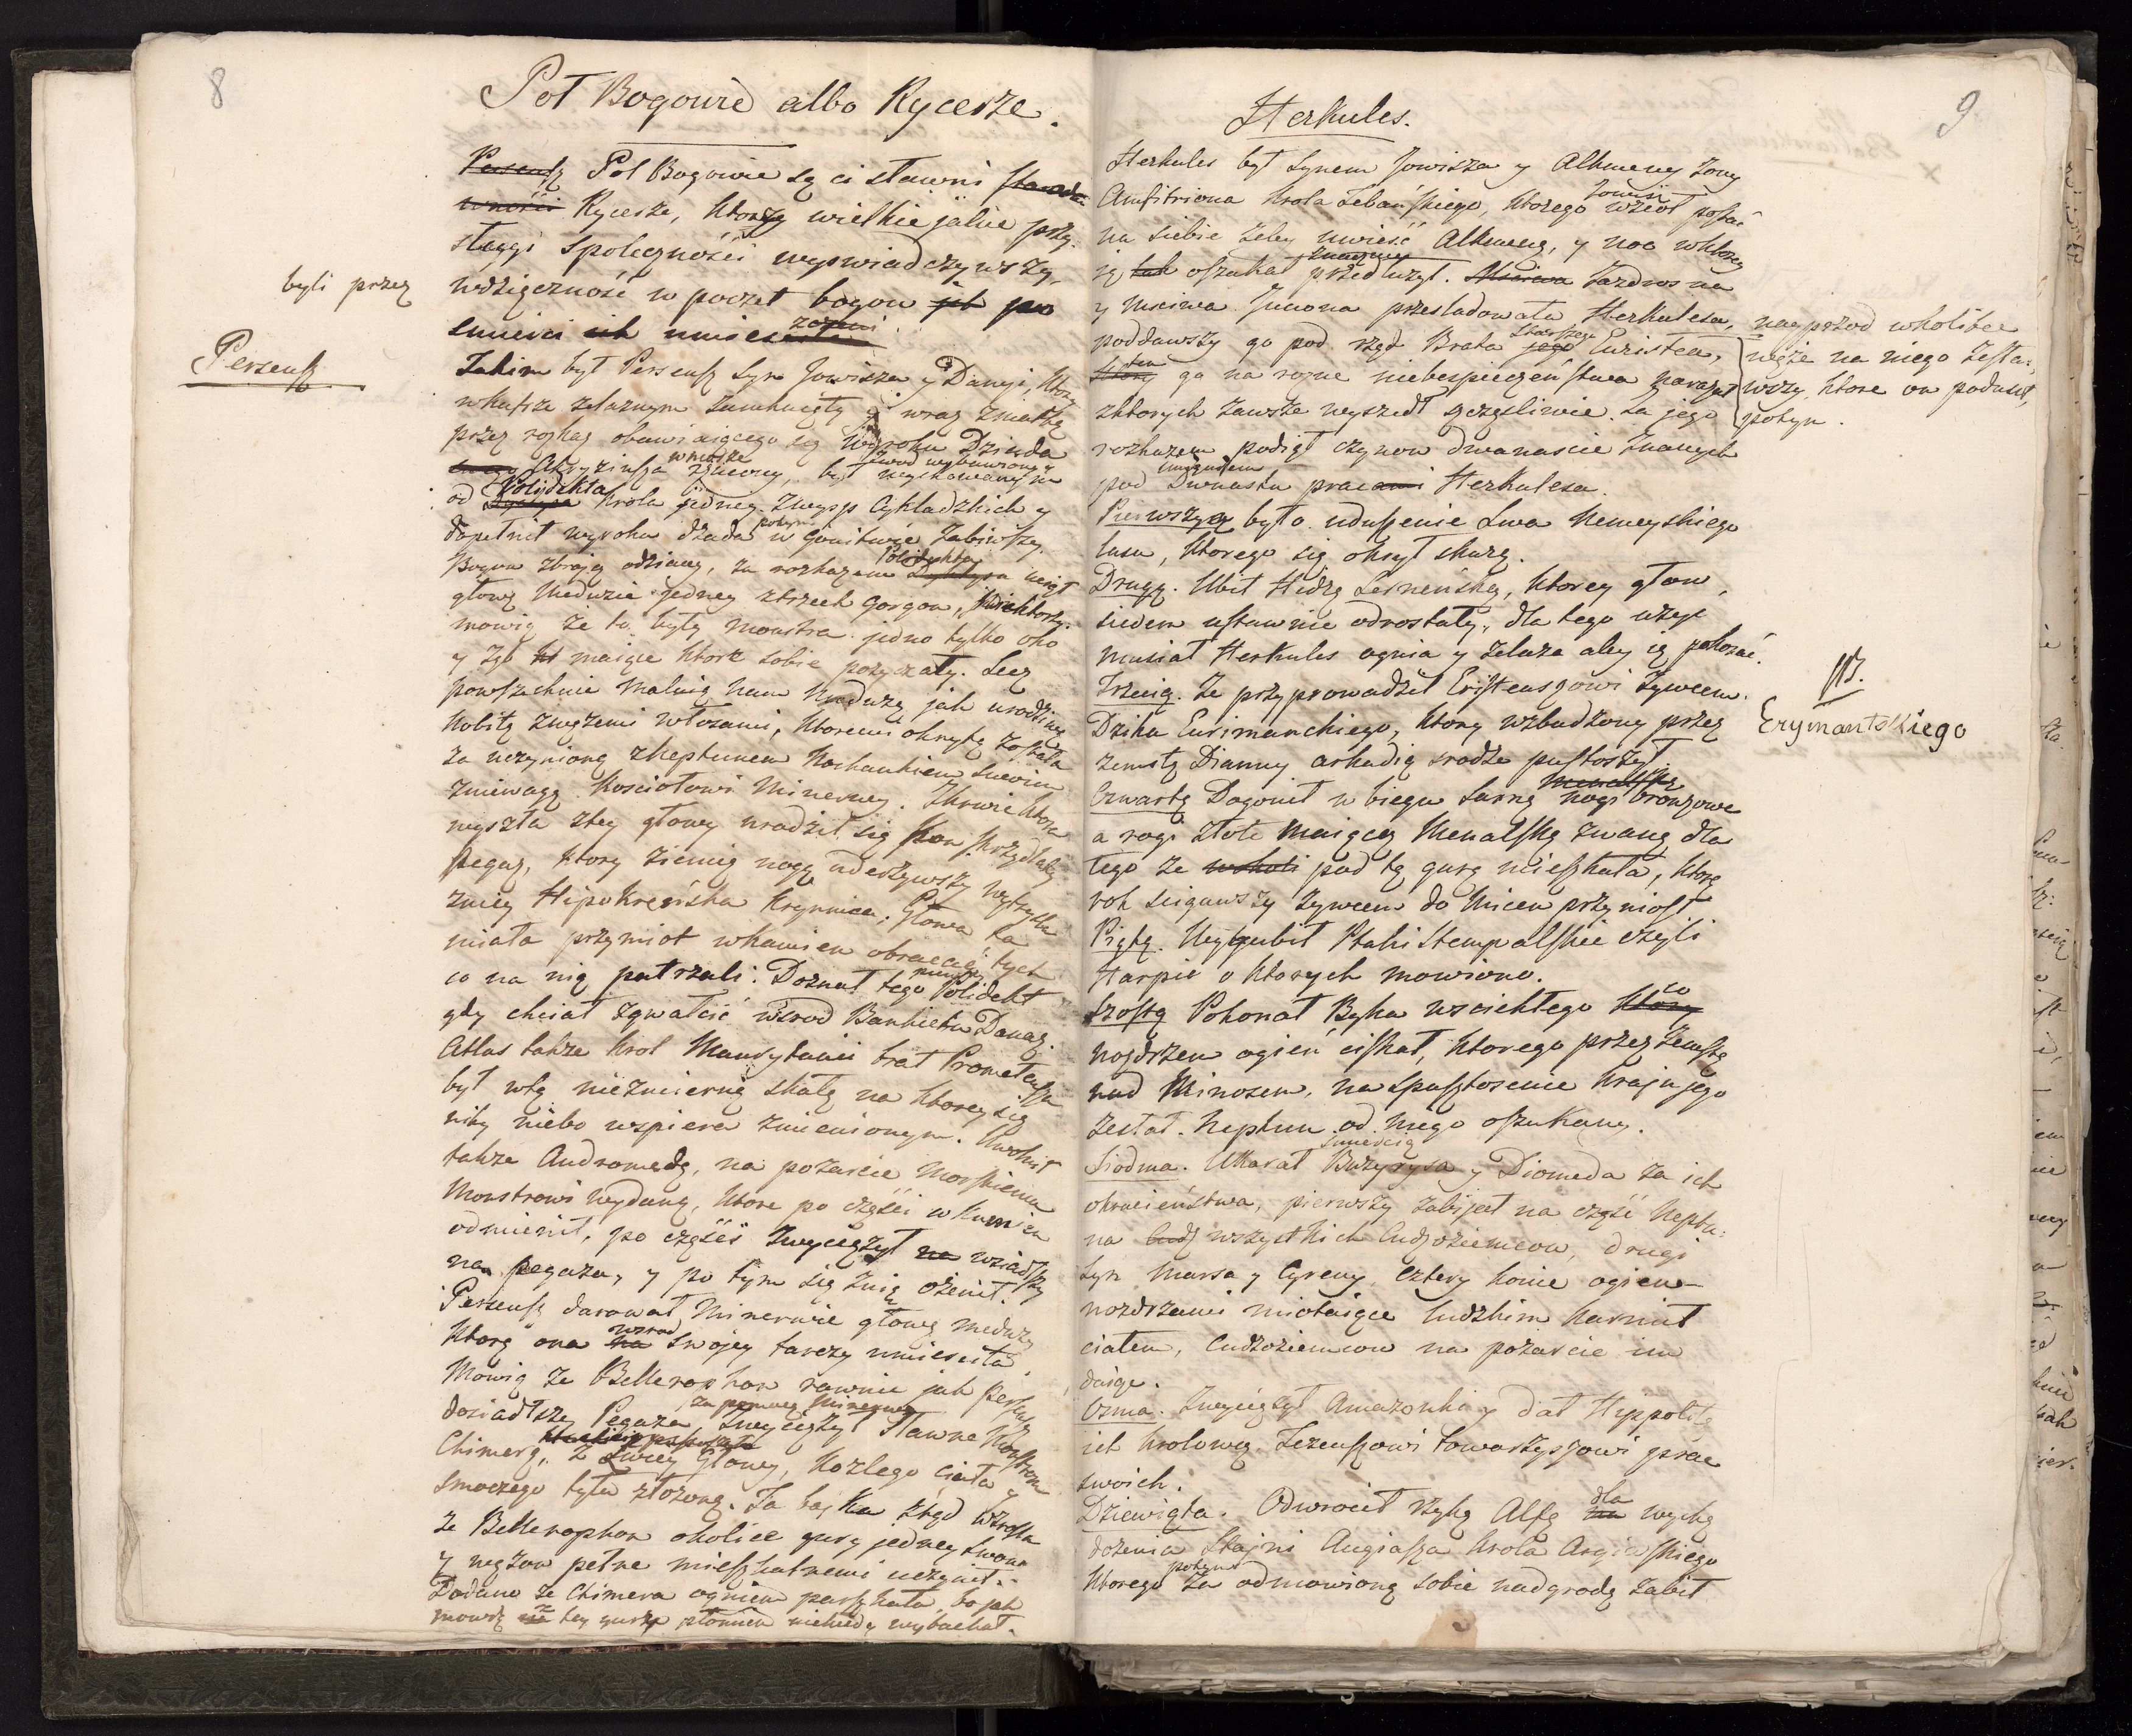 8
Poł Bogowie albo Rycerze.
Perseusz Poł Bogowie są ci sławni
wności Rycerze, ktorzy wielkie jakie przy:
sługi społecznośći wyswiadczywszy,
byli przez
wdzięczność w poczet bogow ich po
zośmi
smierci ich umieszcza
Perseusz
Takim był Perseusz Syn Jowisza y Danaji, ktory
wkufrze żelaznym zamknięty y wraz zmatką
przez rozkaz obawiaiącego się wyroku Dziada
Akryziusza wmorze wrzucony, był wychowanym
zwod wybawiony y
Polidekta
od krola jedney zwysp Cykladzkich y
dopełnił wyroku dziada potym w Gonitwie Zabiwszy.
Bogow zbroją odziany, za rozkazem Polidekta uciął
głowę Meduzie jedney ztrzech Gorgon, Niektorzy
mowią że to były monstra jedno tylko oko
y ząb maiące ktore sobie pozyczały. Lecz
powszechnie maluią nam Meduzę jak urodziwą
kobitę zwężemi włosami, ktoremi okrytą została
za uczynioną zNeptunem Kochankiem swoim
zniewagę Kosciołowi Minerwy. Zkrwi ktora
wyszła ztey głowy urodził się Kon skrzydlaty
Pegaz, ktory ziemię nogą uderzywszy wytrysła
zniey Hipokreńska Krynica; Głowa ta
miała przymiot wkamien obracać tych
co na nią patrzali: Doznał tego Polidekt
gdy chciał zgwałcić wsrod Bankietu Danaę.
Atlas także krol Maurytanii brat Prometeusza
był wtę niezmierną skałę na ktorey się
niby niebo wspiera zmienionym. Uwolnił
także Andromedę, na pożarcie morskiemu
Monstrowi wydaną, ktore po części w kamien
odmienił, po części zwyciężył na wsiadłszy
na pegaza, y po tym się znią ożenił.
Perseusz darował Minerwie głowę meduzy
wsrod
ktorą ona na swojey tarczy umiesciła
Mowią że Bellerophon rownie jak Perseusz
za pomocą Minerwy
dosiadłszy Pegaza zwyciężył sławne Monstrum
Chimerę, z Lwiey Głowy, Kozlego ciała y
smoczego tyłu złożoną. Ta bajka ztąd wzrosła
że Bellerophon okolice gury jedney Lwow
y wężow pełne mieszkalnemi uczynił.
Dodano że Chimera ogniem parskała, bo jak
mowią z tey gury płomien niekiedy wybuchał.
9
Herkules.
Herkules był Synem Jowisza y Alkmeny żony
Jowisz
Amfitriona krola Tebańskiego, ktorego wziął postać
na siebie żeby uwiesć Alkmenę, y noc wktorey
znaczney
ją tak oszukał przedłuzył. Msciwa Zazdrosna
y msciwa Junona przesladowała Herkulesa,
nayprzod wkolibce
węże na niego zesła:
wszy, ktore on podusił,
potym.
starszego
poddawszy go pod rząd Brata jego Euristea,
ten
ktory go na rozne niebespieczeństwa narażał
zktorych zawsze wyszedł szczęśliwie. Za jego
rozkazem podiął czynow dwanascie znanych
imieniem
pod Dwunastu pracami Herkulesa.
Pierwszą było uduszenie Lwa Nemeyskiego
lasu, ktorego się okrył skurą.
Drugą. Ubił Hidrę Lerneńską, ktorey głow,
siedem ustawnie odrostały, dla tego użyć
musiał Herkules ognia y żelaza aby ią pokonać.
Trzecią. Że przyprowadził Eristeuszowi żywcem
Dzika Eurimanckiego, ktory wzbudzony przez
NB.
Erymantskiego
zemstę Dianny arkadią srodze pustoszył.
Czwartą Dogonił w biegu Sarnę nogi bronzowe
a rogi złote maiącą Menalską zwaną dla
tego że pod tą gurą mieszkała, ktorą
rok scigawszy żywcem do Micen przyniosł
Piątą. Wygubił Ptaki Stempalskie czyli
Harpie o ktorych mowiono.
Szostą Pokonał Byka wsciekłego ktory
co
nozdrzem ogień ciskał, ktorego przez zemstę
nad Minosem, na spustoszenie kraju jego
zesłał. Neptun od niego oszukany.
smiercią
Siodma. Ukarał Buzyrysa y Diomeda za ich
okrucieństwa, pierwszy zabijał na część Neptu:
na wszystkich Cudzoziemcow, drugi
Syn Marsa y Cyreny, cztery konie ogien
nozdrzami miotaiące ludzkim karmił
ciałem, Cudzoziemcow na pożarcie im
daiąc.
Osma. Zwyciężył Amazonki y dał Hippolitę
ich krolową Tezeuszowi towarzyszowi prac
swoich.
Dziewiąta. Odwrocił rzykę Alfę dla wychę
dożenia Stajni Augiasza krola Argiaskiego
ktorego potym za odmowioną sobie nadgrodę zabił